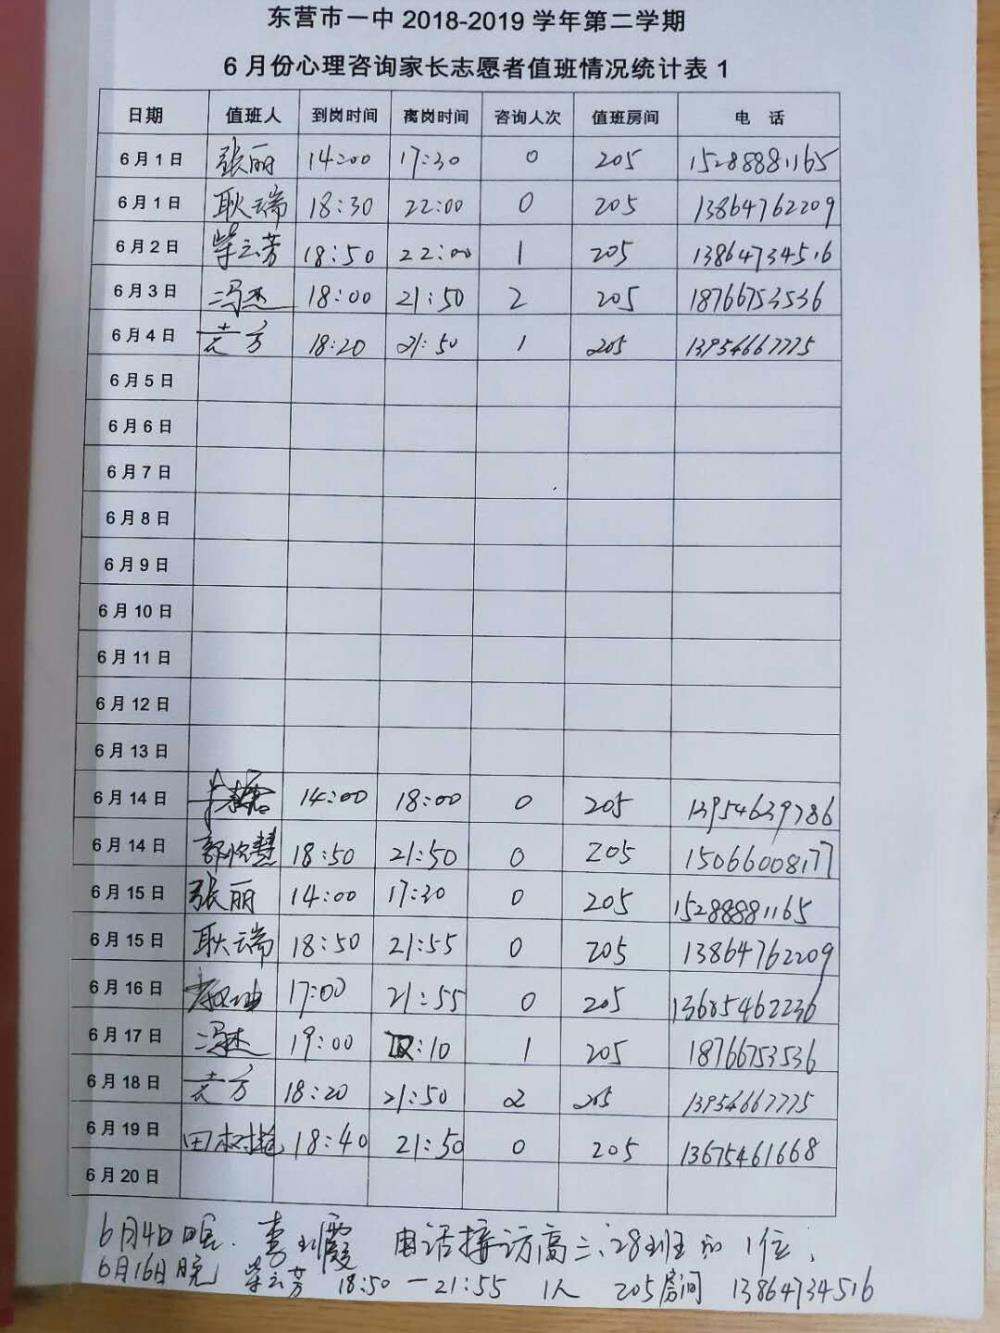 东营市一中 2018-2019 学年第二学期
6 月份心理咨询家长志愿者值班情况统计表 1
日期 值班人 到岗时间 离岗时间 咨询人次 值班房间 电 话
6月1日 张丽 14:00 17:30 0 205 15288881165
6月1日 耿瑞 18:30 22:00 0 205 13864762209
6月2日 柴云芳 18:50 22:00 1 205 13864734516
6月3日 冯杰 18:00 21:50 2 205 18766753536
6月4日 方 18:20 21:50 1 205 13954667775
6月5日
6月6日
6月7日
6月8日
6月9日
6月10日
6月11日
6月12日
6月13日
6月14日 14:00 18:00 0 205 13954639786
6月14日 郭悦慧 18:50 21:50 0 205 15066008177
6月15日 张丽 14:00 17:30 0 205 15288881165
6月15日 耿瑞 18:50 21:55 0 205 13864762209
6月16日 17:00 21:55 0 205 13685462236
6月17日 冯杰 19:00 :10 1 205 18766753536
6月18日 方 18:20 21:50 2 205 13954667775
6月19日 田树 18:40 21:50 0 205 13675461668
6月20日
6月4日晚. 李 霞 电话接访高三、28班的1位,
6月16日晚 柴云芳 18:50—21:55 1人 205房间 13864734516